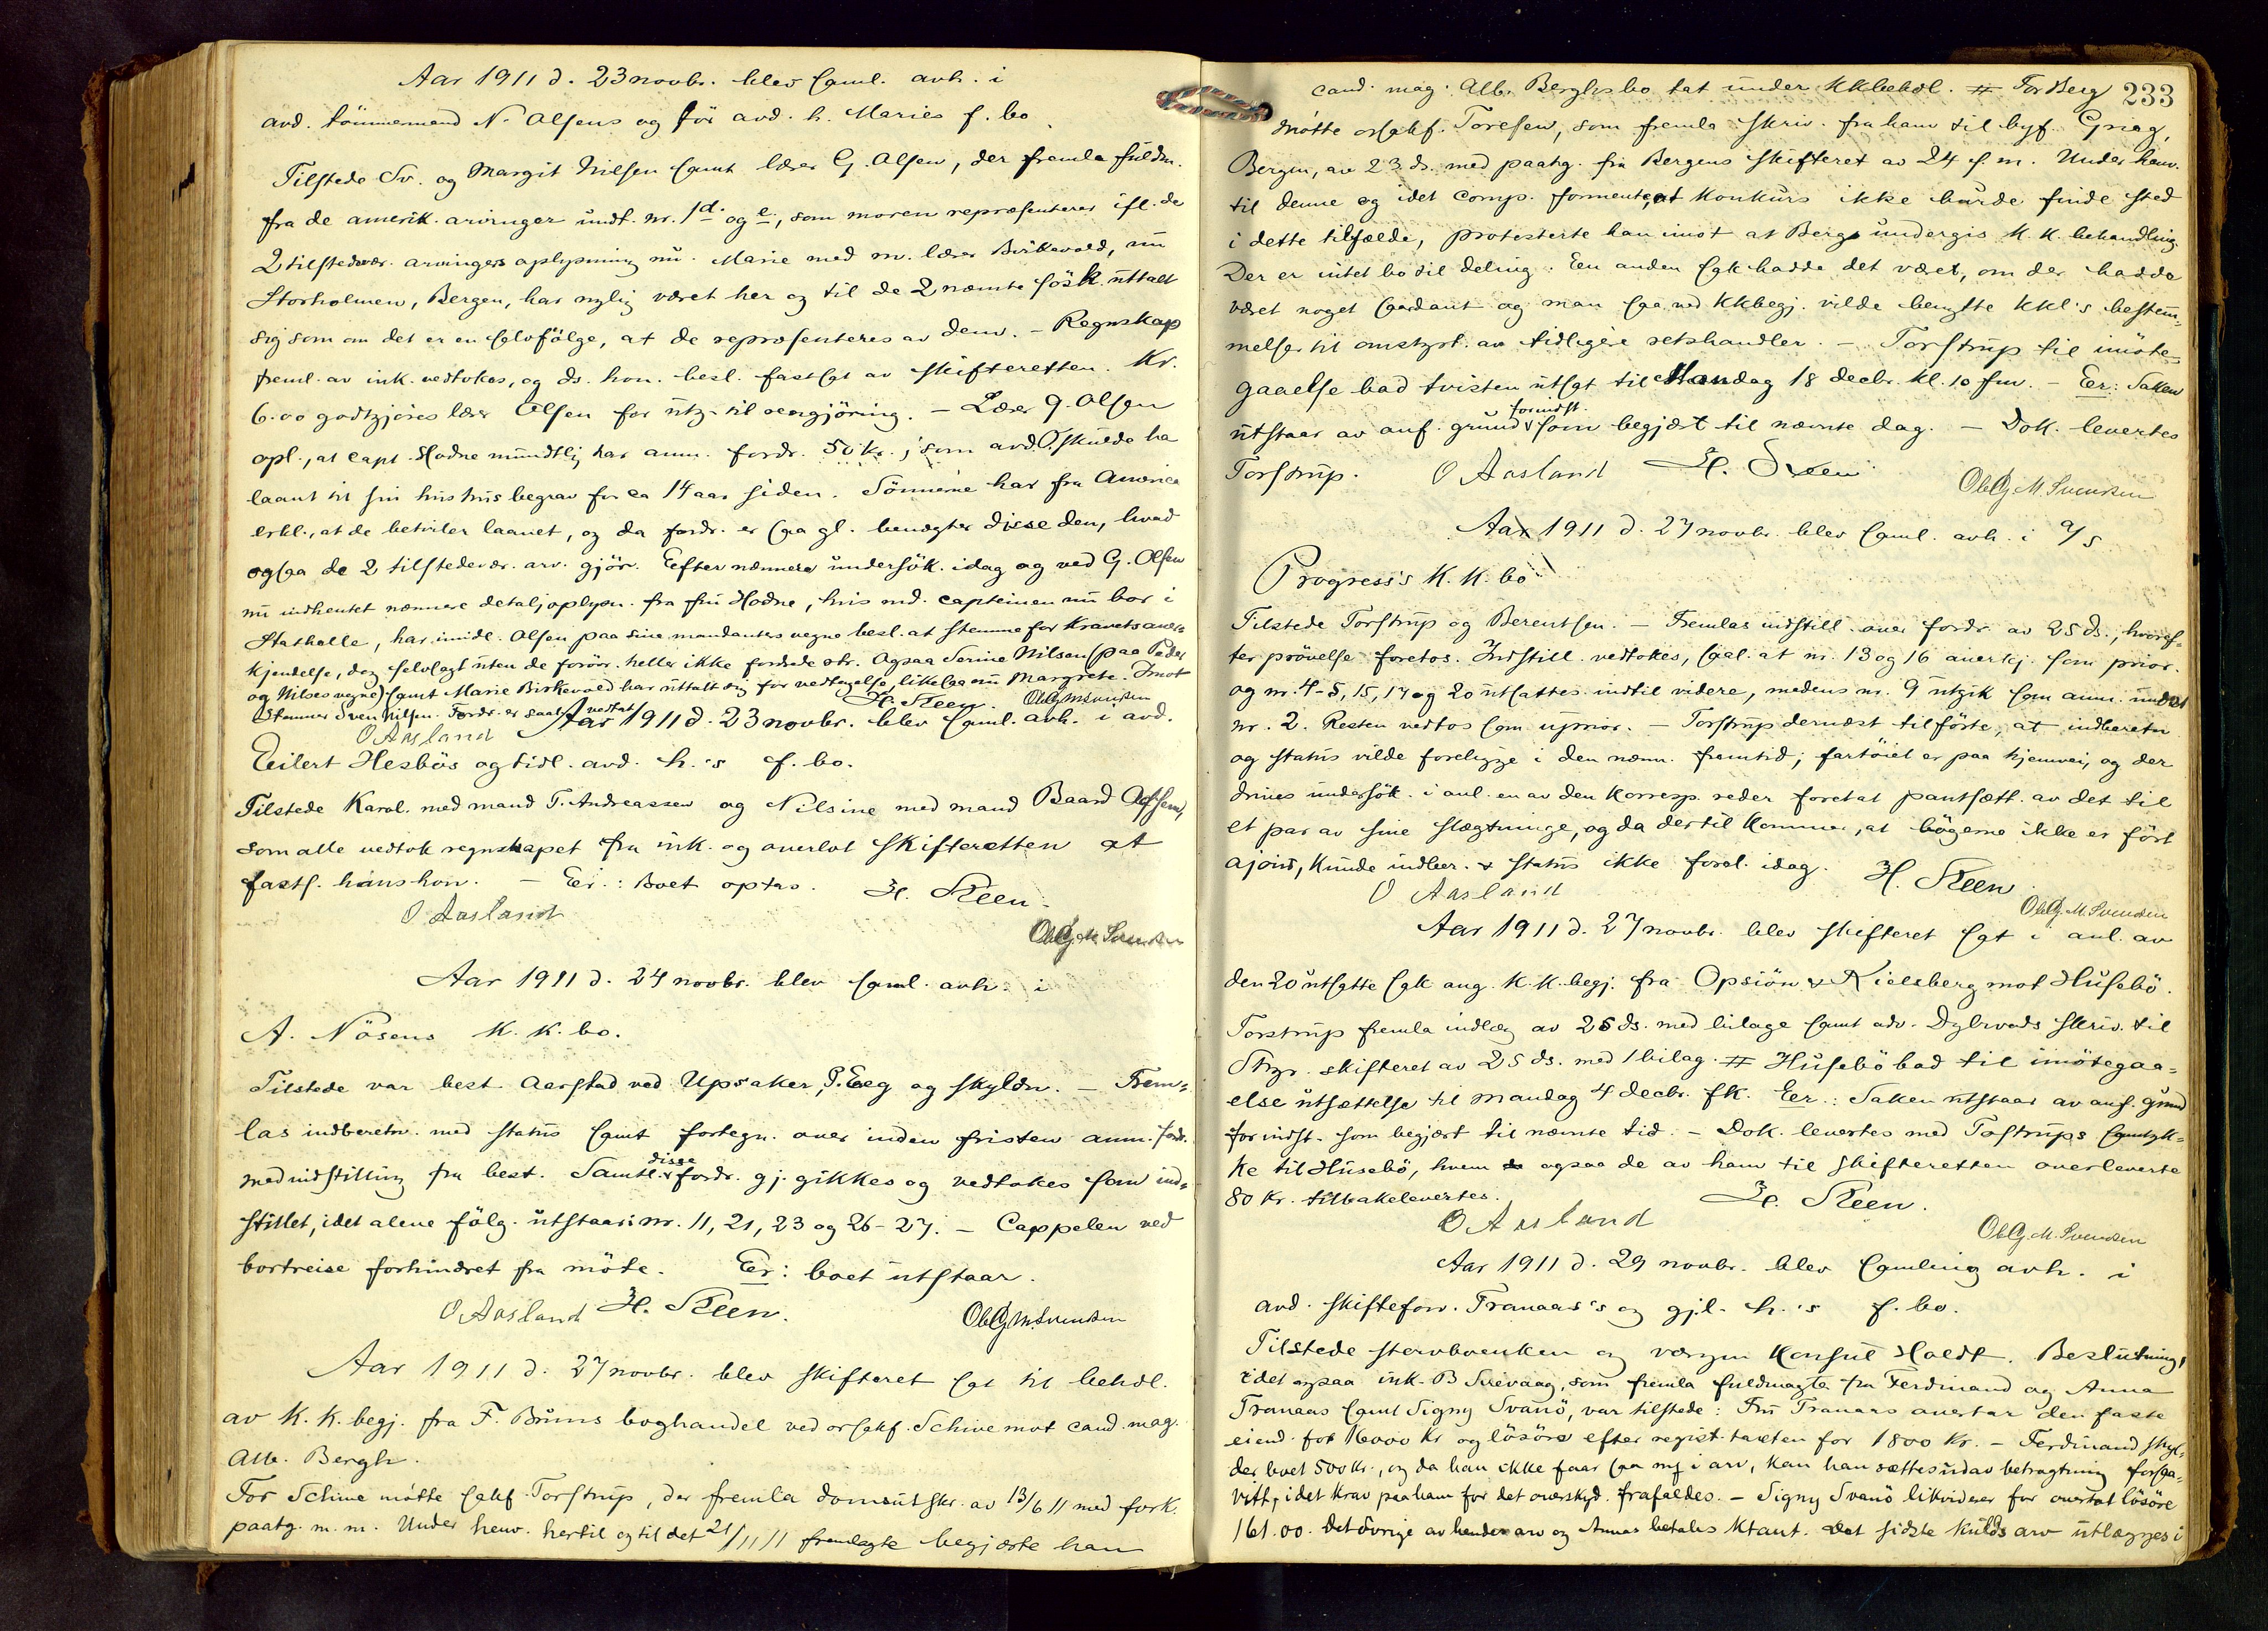 Aar 1911 d. 23 novbr. blev saml. avh. i
avd. tömmermand N. Olsens og för avd. h. Maries f. bo
Tilstede Sv. og Margit Nilsen samt lærer G. Olsen, der fremla fuldm.
fra de amerik. arvinger undt. nr. 1 d. og e., som moren repræsenterer ifl. de
2 tilstedevær. arvingers oplysning nu. Marie med m. lærer Birkevold, nu
Storholmen, Bergen, har nylig været her og til de 2 nævnte søsk. uttalt
sig som om det er en selvfölge, at de repræsenteres av dem. - Regnskap
freml. av ink. vedtokes, og ds. hon. besl. fastsat av skifteretten. Kr.
6.00 godtgjöres lærer Olsen for utg. til rengjöring. - Lærer G. Olsen
opl., at capt. Hodne mundtlig har anm. fordr. 50 kr., som avd. O. skulde ha
laant til sin hustrus begrav. for ca 14 aar siden. Sönnerne har fra America
erkl., at de betviler laanet, og da fordr. er saa gl. benegter disse den, hvad
ogsaa de 2 tilstedevær. arv. gjör. Efter nærmere undersök. idag og ved G. Olsen
nu indhentet nærmere detaljoplysn. fra fru Hodne, hvis md. capteinen nu bor i
Stathelle, har imidl. Olsen paa sine mandanters vegne besl. at stemme for kravets aner-
kjendelse, dog selvsagt uten de forövr. heller ikke fordrede rtr. Ogsaa Serine Nilsen (paa Peder
og Nilses vegne) samt Marie Birkevold har uttalt sig for vedtagelse, likesaa nu Margrete. Imot
stemmer Sven Nilsen. Fordr. er saaledes vedtat.
H. Steen. Ol. G. M. Svendsen
O Aasland
Aar 1911 d. 23 novbr. blev saml. avh. i avd.
Eilert Hesbös og tidl. avd. h.'s f. bo.
Tilstede Karol. med mand T. Andreassen og Nilsine med mand Baard
som alle vedtok regnskapet fra ink. og overlot skifteretten at
fasts. hans hon. - Eer.: Boet optas. H. Steen.
O Aasland
Ol. G. M. Svendsen
Aar 1911 d. 24 novbr. blev saml. avh. i
A. Nösens K. K. bo.
Tilstede var best. Aarstad ved Upsaker, P. Eeg og skyldn. - Frem-
las indberetn. med status samt fortegn. over inden fristen anm. fordr.
med indstilling fra best. Samtl. disse fordr. gj. gikkes og vedtokes som ind-
stillet, idet alene fölg. utstaar: nr. 11, 21, 23 og 26-27. - Cappelen ved
bortreise forhindret fra möte. Eer: boet utstaar.
O Aasland H. Steen. Ol. G. M. Svendsen
Aar 1911 d. 27 novbr. blev skifteret sat til behdl.
av K. K. begj. fra F. Bruns boghandel ved orsakf. Schive mot cand. mag.
Alb. Bergh.
For Schive mötte sakf. Torstrup, der fremla domsutskr. av 13/6 11 med fork.
paateg. m. m. Under henv. hertil og til det 21/11 11 fremlagte begjærte han
233
cand. mag. Alb. Berghs bo tat under KKbehdl. # For Berg
mötte orsakf. Toresen, som fremla skriv. fra ham til byf. Grieg,
Bergen, av 23 ds. med paateg. fra Bergens skifteret av 24 s. m. Under henv.
til denne og idet comp. formente, at konkurs ikke burde finde sted
i dette tilfælde, protesterte han imot at Bergs undergis K. K. behandling.
Der er intet bo til deling. En anden sak hadde det været, om der hadde
været noget saadant og man saa ved KKbegj. vilde benytte KKl's bestem-
melser til omstyrt. av tidligere retshandler. - Torstrup til imöte-
gaaelse bad tvisten utsat til Mandag 18 decbr. kl. 10 fm. - Eer: Saken
utstaar av anf. grund forindst. som begjært til nævnte dag. - Dok. levertes
Torstrup. O Aasland H. Steen
Ol. G. M. Svendsen
Aar 1911 d. 27 novbr. blev saml. avh. i A/S
Progress's K. K. bo
Tilstede Torstrup og Berentsen. - Fremlas indstill. over fordr. av 25 ds., hvoref-
ter prövelse foretos. Indstill. vedtokes, saal. at nr. 13 og 16 anerkj. som prior.
og nr. 4-5, 15, 17 og 20 utsattes indtil videre, medens nr. 9 utgik som anm. under
nr. 2. Resten vedtos som uprior. - Torstrup dernæst tilförte, at indberetn.
og status vilde foreligge i den nærm. fremtid; fartöiet er paa hjemvei, og der
drives undersök. i anl. en av den korresp. reder foretat pantsætt. av det til
et par av sine slægtninge, og da dertil kommer, at bögerne ikke er fört
ajour, kunde indber. & status ikke forel. idag. H. Steen
O Aasland
Ol. G. M. Svendsen
Aar 1911 d. 27 novbr. blev skifteret sat i anl. av
den 20 utsatte sak ang. K. K. begj. fra Opsiön & Kielsberg mot Husebö.
Torstrup fremla indlæg av 25 ds. med bilage samt adv. Dybwads skriv. til
Stvgr. skifteret av 25 ds. med 1 bilag. # Husebö bad til imötegaa-
else utsættelse til Mandag 4 decbr. fk. Eer.: Saken utstaar av anf. grund
forindst. som begjært til nævnte tid. - Dok. levertes med Tostrups samtyk-
ke til Husebö, hvem ogsaa de av ham til skifteretten overleverte
80 kr. tilbakelevertes. H. Steen.
O Aasland
Ol. G. M. Svendsen
Aar 1911 d. 29 novbr. blev samling avh. i
avd. skifteforv. Tranaas's og gjl. h.'s f. bo.
Tilstede stervboenken og vergen konsul Holdt. Beslutning,
idet ogsaa ink. B Svevaag, som fremla fuldmagter fra Ferdinand og Anna
Tranaas samt Signy Svanö, var tilstede: Fru Tranaas overtar den faste
eiend. for 16000 kr og lösöre efter regist. taxten for 1800 kr. - Ferdinand skyl-
der boet 500 kr., og da han ikke faar saa meg i arv, kan han sættes ut av betragtning forsaa-
vitt, idet krav paa ham for det overskyd. frafaldes. - Signy Svanö likviderer for overtat lösöre
161.00. Det övrige av hendes arv og Annas betales ktant. Det sidste kulds arv utlægges i